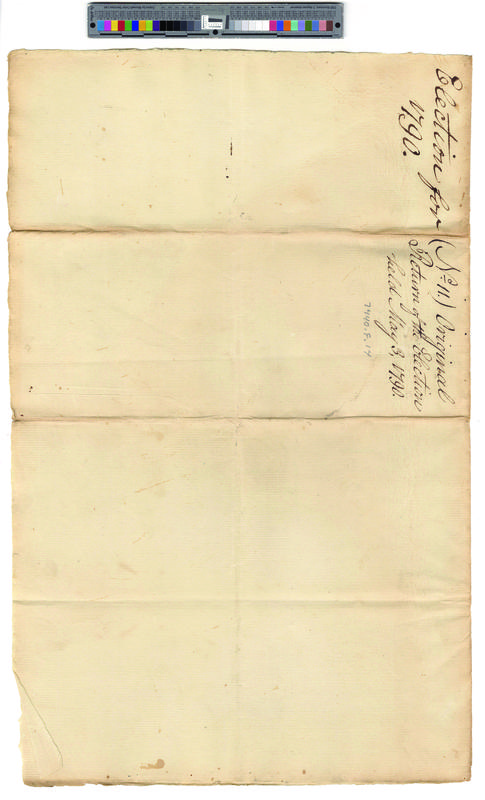 Election for
1790.
(No. 11.) Original
Return of the Election
held May 3, 1790.
7440.F.14